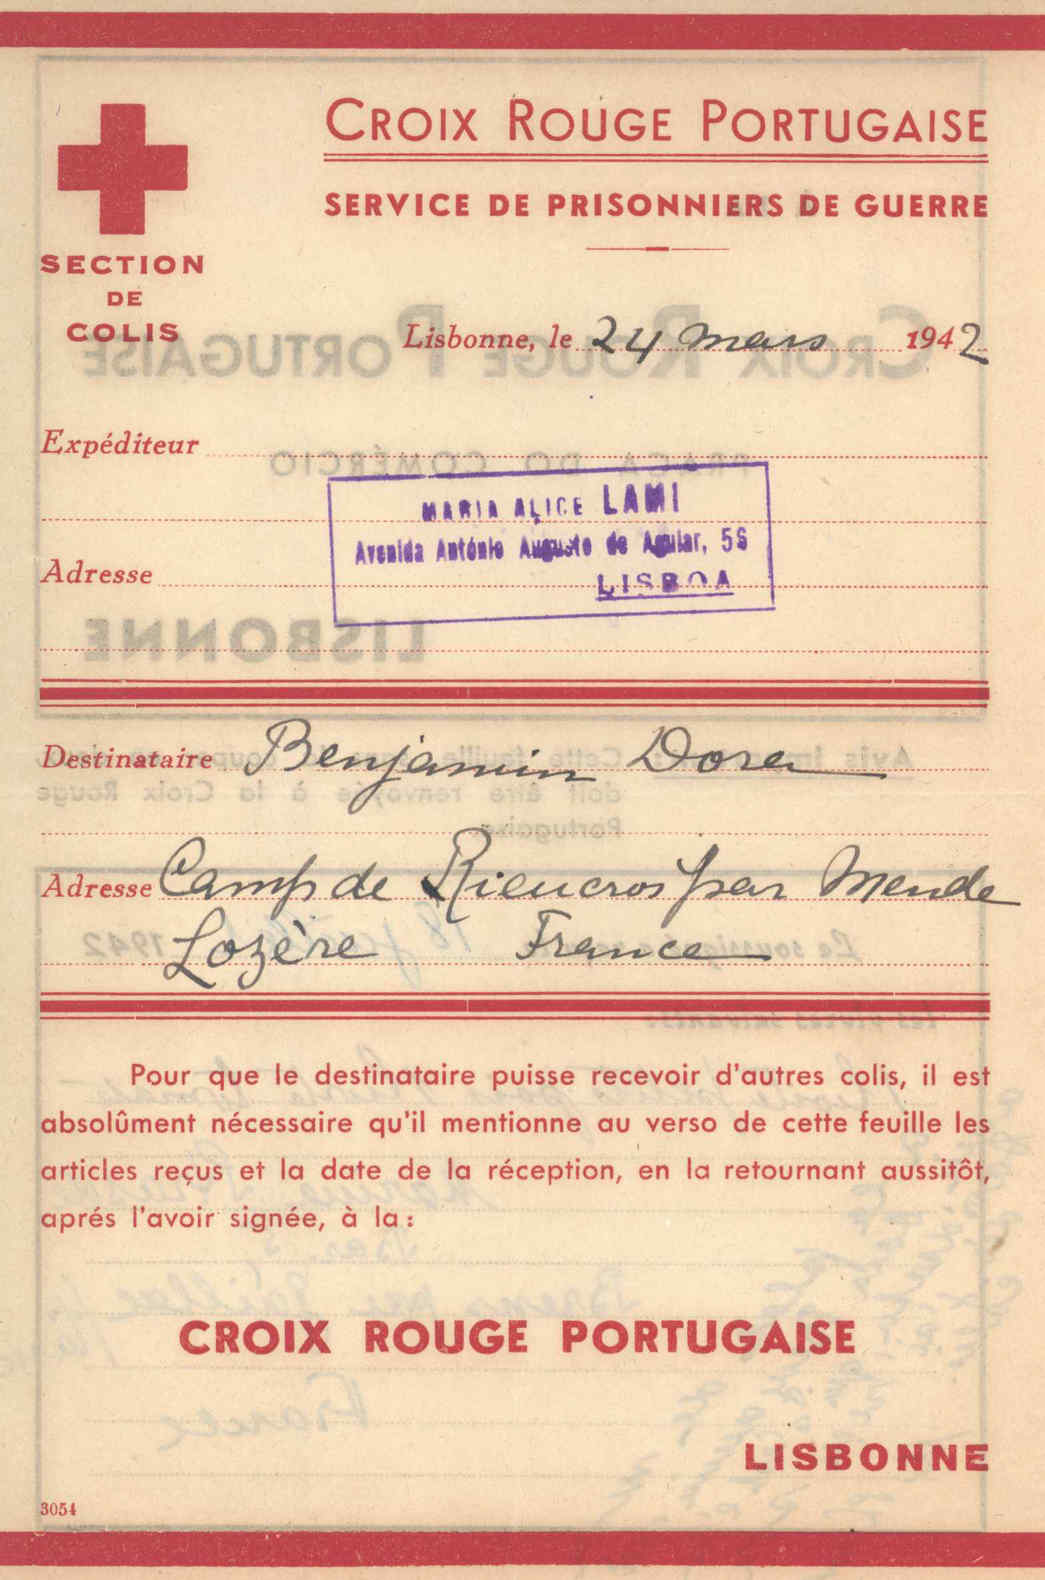 CROIX ROUGE PORTUGAISE
SERVICE DE PRISONNIERS DE GUERRE
SECTION
DE
COLIS
Lisbonne, le 24 mars 1942
Expéditeur
MARIA ALICE LAMI
Avenida António Augusto de Aguiar, 56
LISBOA
Adresse
Destinataire Benjamin Dora
Adresse Camp de Rieucros par Mende
Lozère France
Pour que le destinataire puisse recevoir d'autres colis, il est
absolûment nécessaire qu'il mentionne au verso de cette feuille les
articles reçus et la date de la réception, en la retournant aussitôt,
aprés l'avoir signée, à la:
CROIX ROUGE PORTUGAISE
LISBONNE
3054